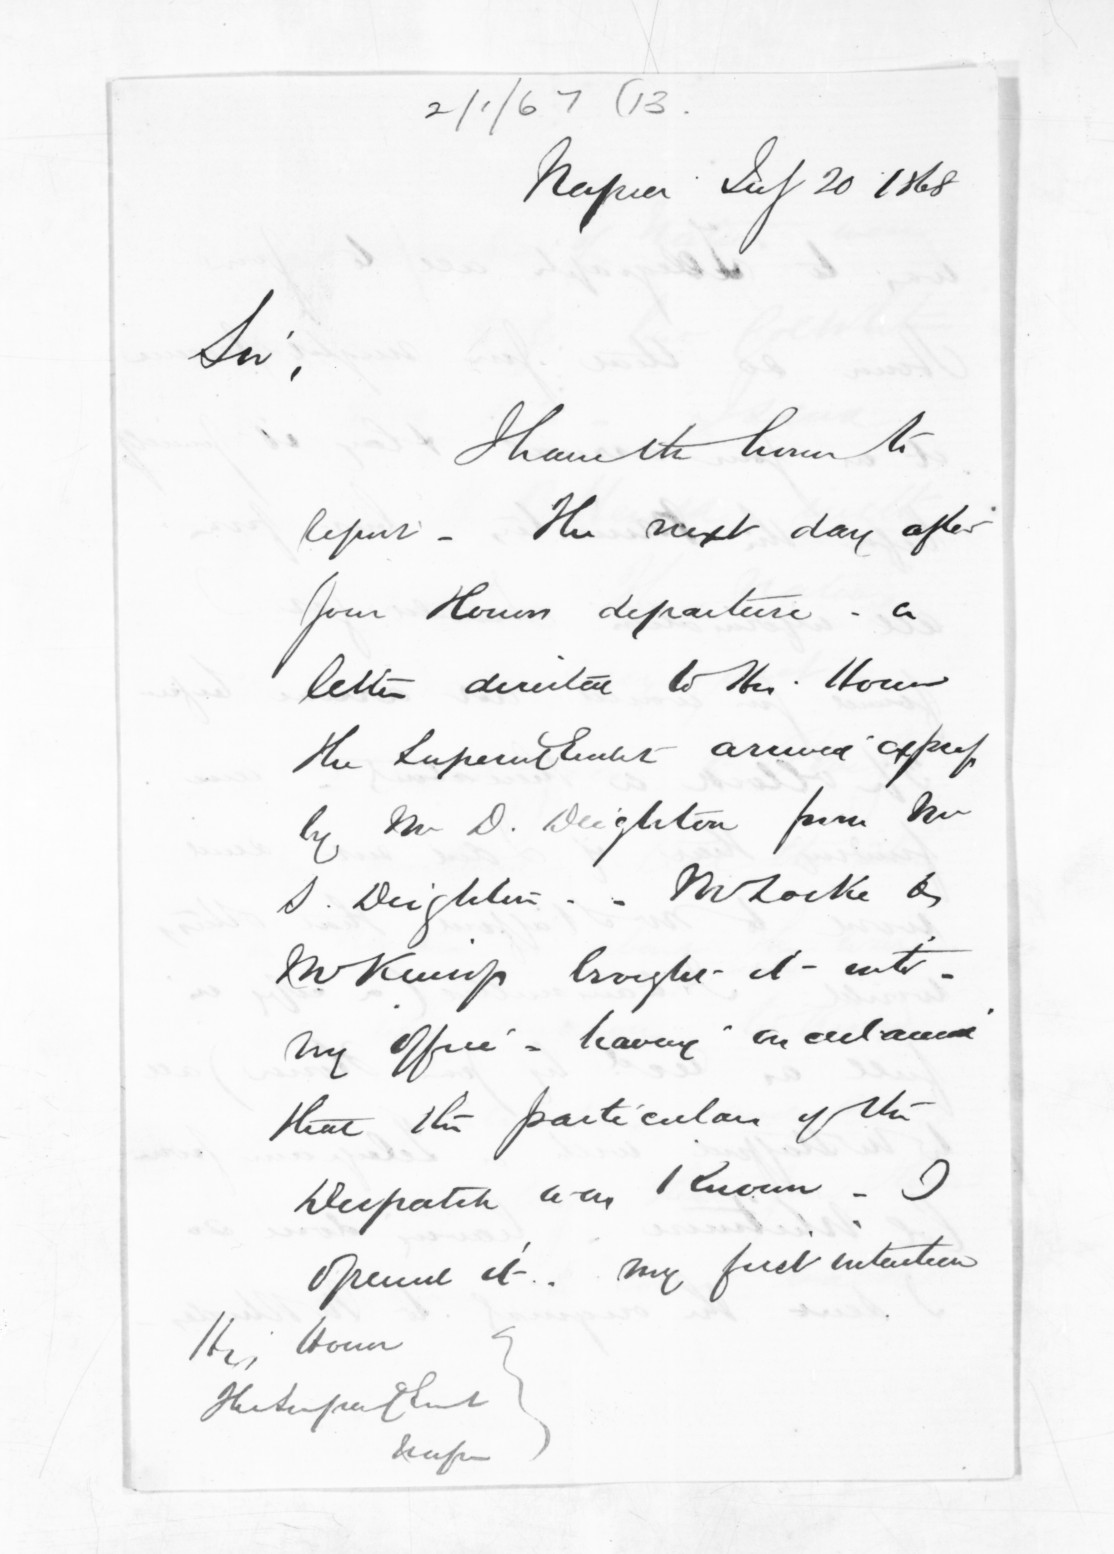 2/1/67 (13.
Napier July 20 1868
Sir,
I have the honor to
report - The next day after
your Honors departure - a
letter directed to His Honor
the Superintendent arrived express
by Mr D. Deighton from Mr
S. Deighton - - Mr Locke &
Mr Kinross brought it into
my office - having
that the particulars of the
Despatch was known - I
opened it - my first intention
His Honor
The Superintendent
Napier